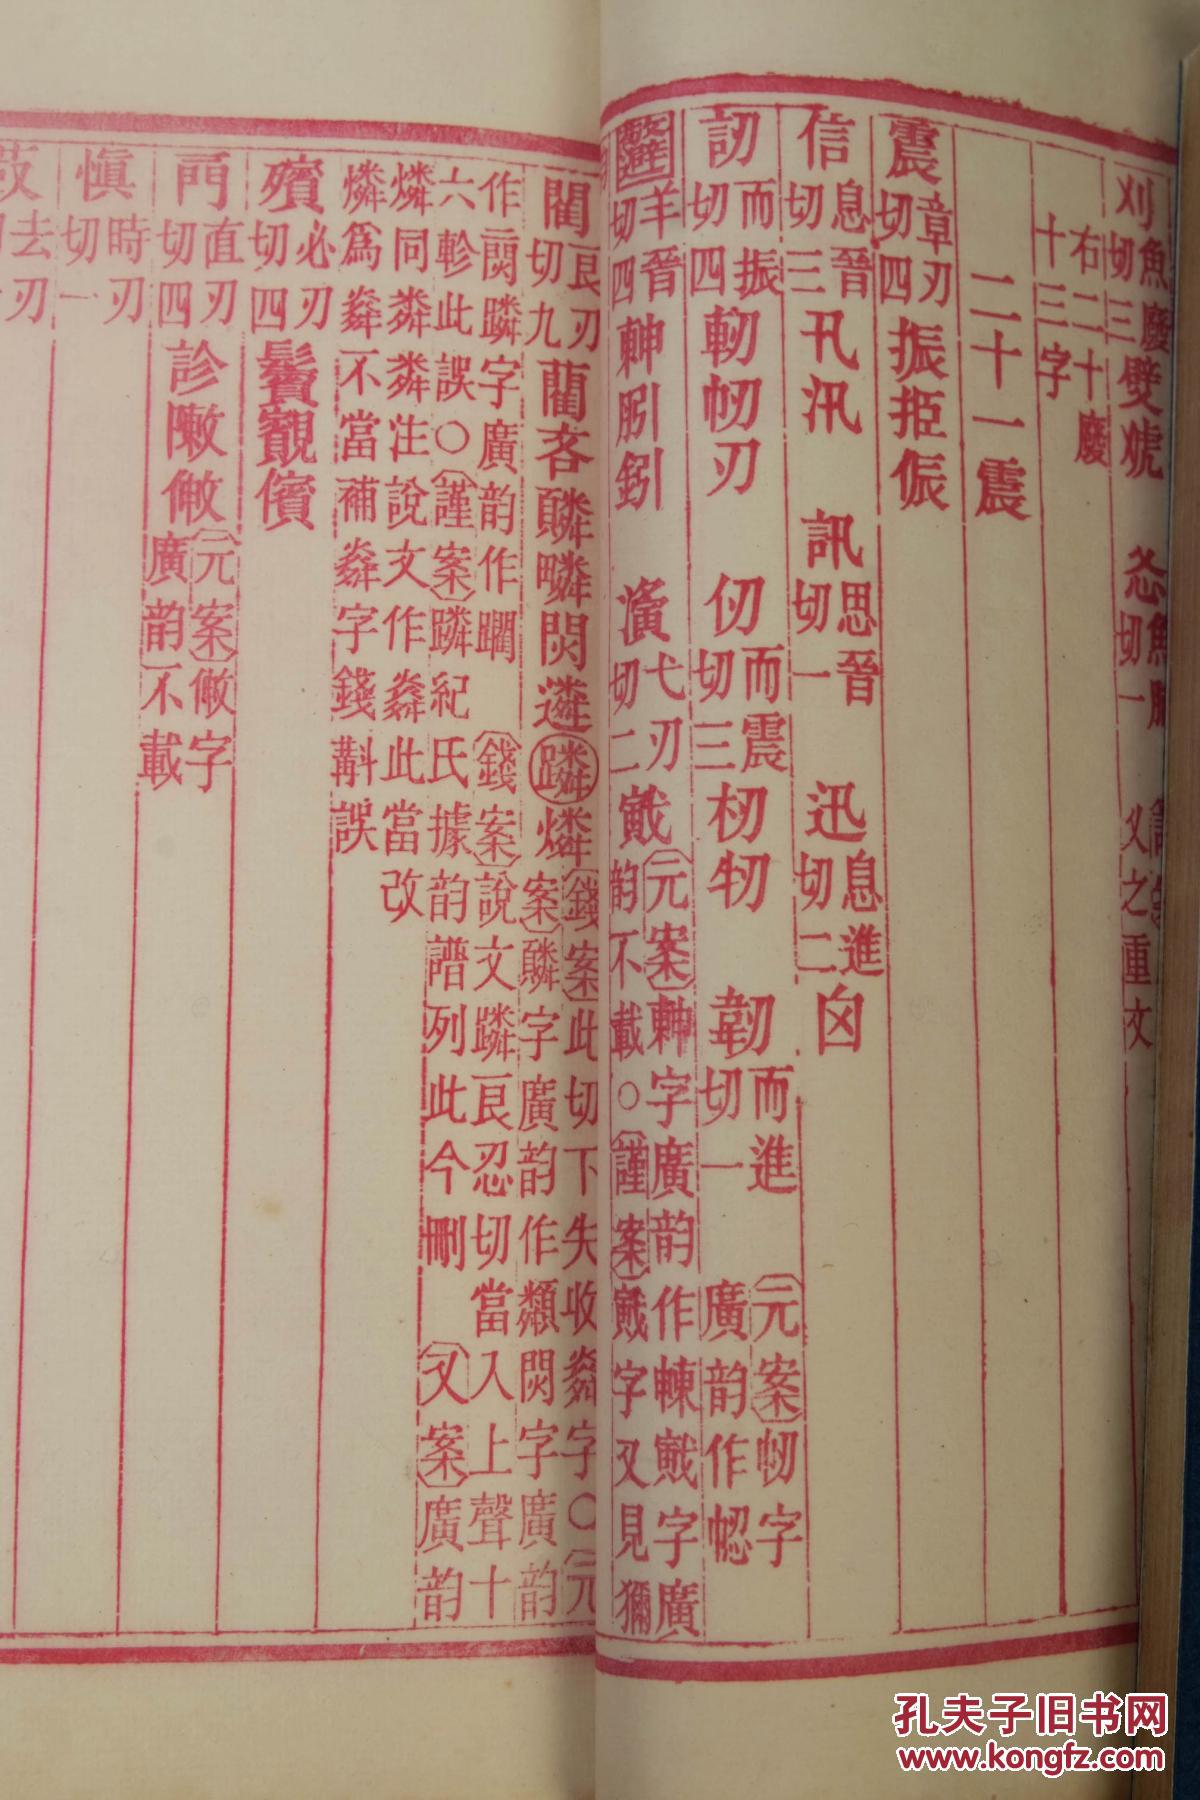 刈魚廢切三㼣㷃 忩魚肺切一
右二十廢
十三字
二十一震
震章刃切四振挋侲
信息晉切三卂汛 訊思晉切一 迅息進切二囟
訒而振切四軔㠴刃 仞而震切三杒牣 韌而進切一 元案㠴字廣韵作㡇
羊晉切四𣌾胤鈏 濥弋刃切二戭元案𣌾字廣韵作㯥戭字廣韵不載○謹案戭字又見獮
閵良刃切九藺吝㔂疄閃遴蹸燐錢案此切下失收粦字○元案㔂字廣韵作纇閃字廣韵
作䦨蹸字廣韵作躙 錢案說文蹸良忍切當入上聲十
六軫此誤○謹案蹸紀氏據韵譜列此今刪 又案廣韵
燐同粦粦注說文作粦此當改
燐為粦不當補粦字錢斠誤
殯必刃切四鬢覿儐
門直刃切四診敶敒元案敒字廣韵不載
愼時刃切一
去刃
孔夫子旧书网
www.kongfz.com